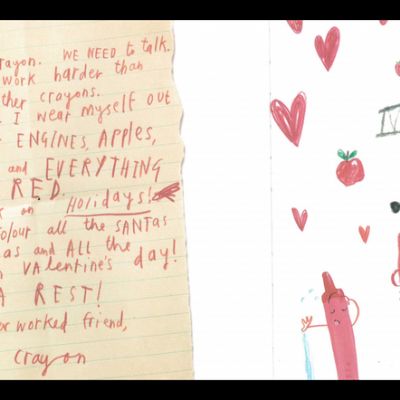 rayon. WE NEED to talk.
work harder than
ther crayons.
I wear myself out
ENGINES, Apples,
and EVERYTHING
RED.
on Holidays!
olour all the SANTas
as and All the
VAlentine's day!
A REST!
worked friend,
crayon